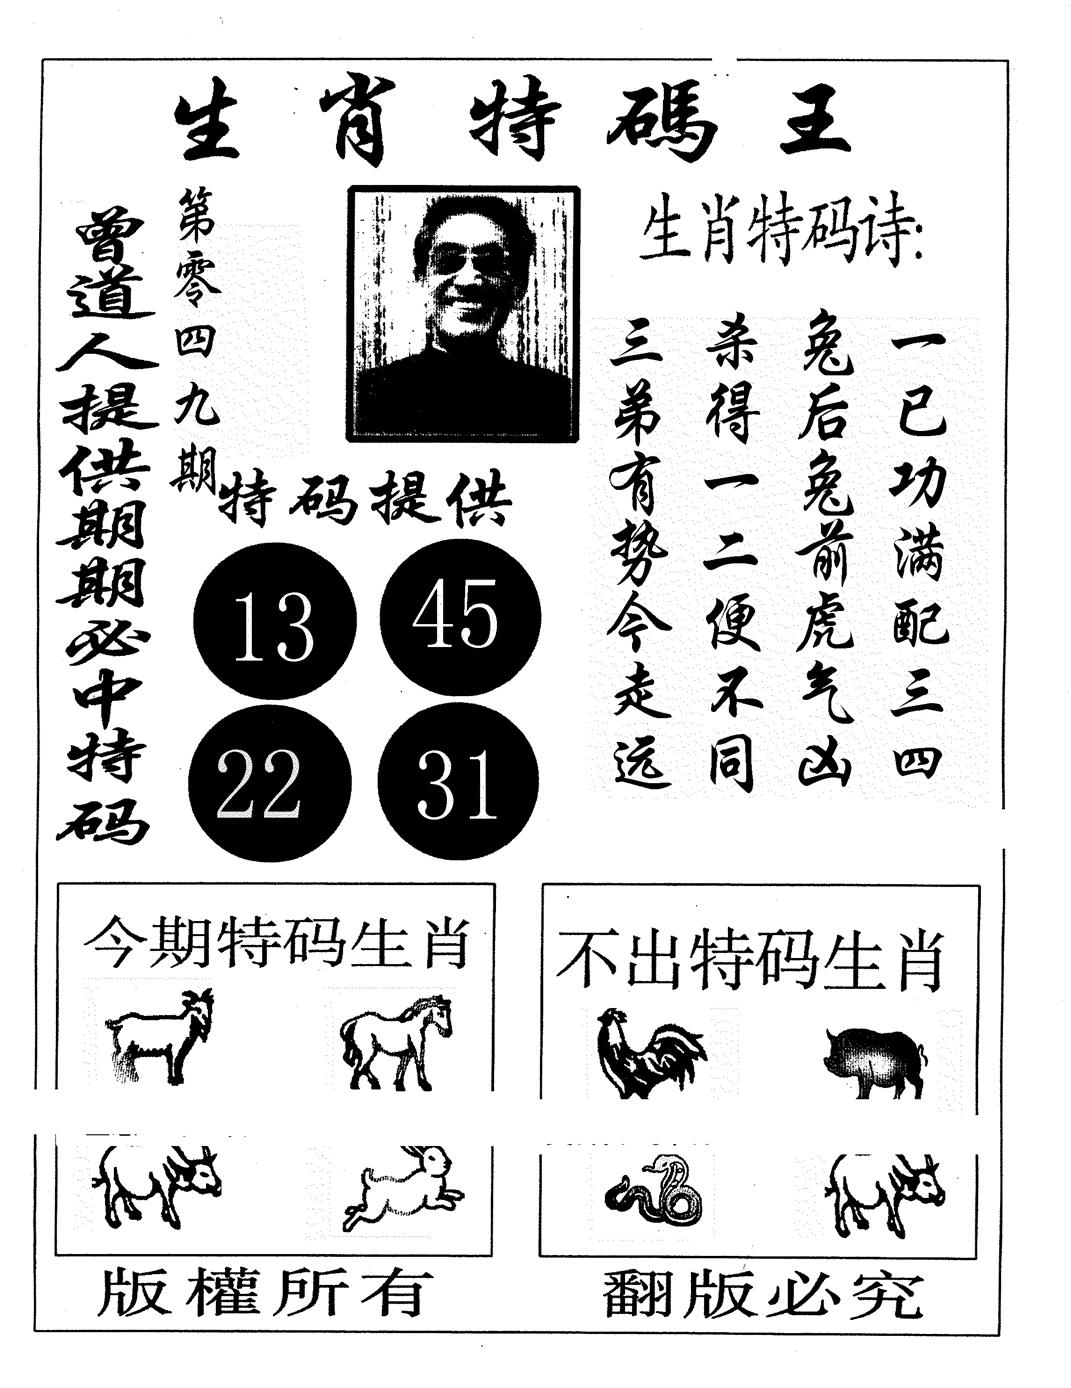 生肖特碼王
曾道人提供期期必中特码
第零四九期
特码提供
13
45
22
31
生肖特码诗:
一已功满配三四
兔后兔前虎气凶
杀得一二便不同
三弟有势今走远
今期特码生肖
不出特码生肖
版權所有
翻版必究